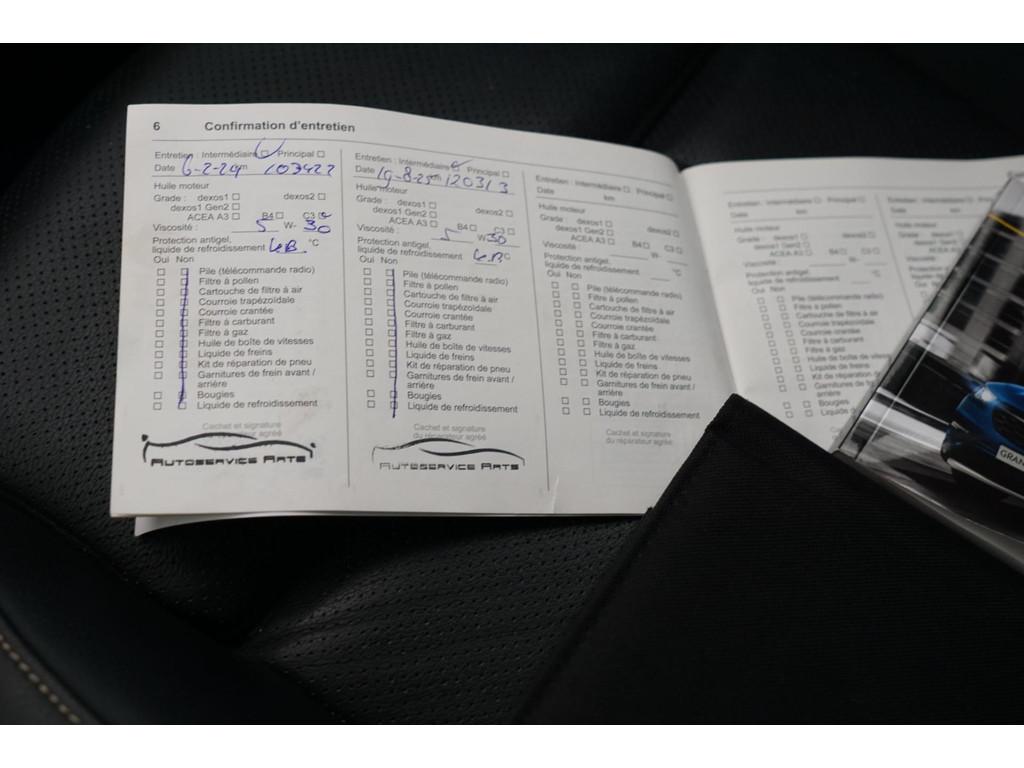 6 Confirmation d'entretien
Entretien : Intermédiaire Principal
Date 6-2-24 km 103422
Huile moteur
Grade : dexos1 dexos2
dexos1 Gen2
ACEA A3 B4 C3
Viscosité : 5 W- 30
Protection antigel,
liquide de refroidissement °C
Oui Non
Pile (télécommande radio)
Filtre à pollen
Cartouche de filtre à air
Courroie trapézoïdale
Courroie crantée
Filtre à carburant
Filtre à gaz
Huile de boîte de vitesses
Liquide de freins
Kit de réparation de pneu
Garnitures de frein avant /
arrière
Bougies
Liquide de refroidissement
Cachet et signature
du réparateur agréé
AUTOSERVICE ARTS
Entretien : Intermédiaire Principal
Date 19-8-25 km 120313
Huile moteur
Grade : dexos1 dexos2
dexos1 Gen2
ACEA A3 B4 C3
Viscosité : 5 W 30
Protection antigel,
liquide de refroidissement °C
Oui Non
Pile (télécommande radio)
Filtre à pollen
Cartouche de filtre à air
Courroie trapézoïdale
Courroie crantée
Filtre à carburant
Filtre à gaz
Huile de boîte de vitesses
Liquide de freins
Kit de réparation de pneu
Garnitures de frein avant /
arrière
Bougies
Liquide de refroidissement
Cachet et signature
du réparateur agréé
AUTOSERVICE ARTS
Entretien : Intermédiaire Principal
Date km
Huile moteur
Grade : dexos1 dexos2
dexos1 Gen2
ACEA A3 B4 C3
Viscosité : W-
Protection antigel,
liquide de refroidissement °C
Oui Non
Pile (télécommande radio)
Filtre à pollen
Cartouche de filtre à air
Courroie trapézoïdale
Courroie crantée
Filtre à carburant
Filtre à gaz
Huile de boîte de vitesses
Liquide de freins
Kit de réparation de pneu
Garnitures de frein avant /
arrière
Bougies
Liquide de refroidissement
Cachet et signature
du réparateur agréé
Entretien : Intermédiaire Principal
Date km
Huile moteur
Grade : dexos1 dexos2
dexos1 Gen2
ACEA A3 B4 C3
Viscosité : W-
Protection antigel,
liquide de refroidissement °C
Oui Non
Pile (télécommande radio)
Filtre à pollen
Cartouche de filtre à air
Courroie trapézoïdale
Courroie crantée
Filtre à carburant
Filtre à gaz
Huile de boîte de vitesses
Liquide de freins
Kit de réparation de pneu
Garnitures de frein
arrière
Bougies
Liquide
GRAN